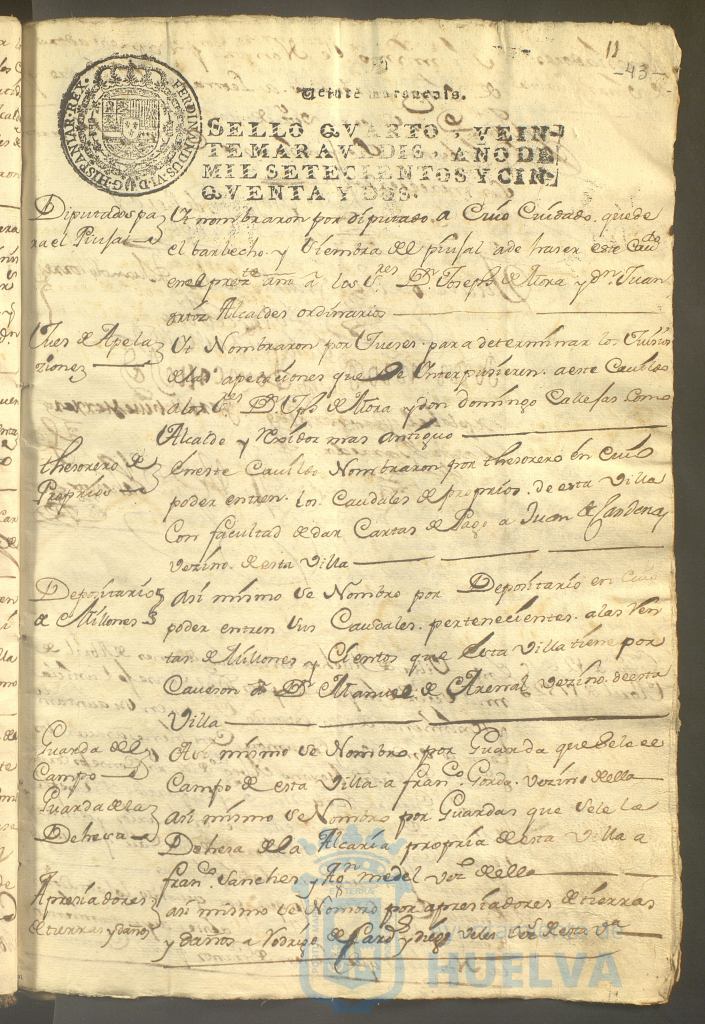 11
-43-
Veinte maravedis.
SELLO QVARTO, VEIN-
TE MARAVEDIS, AÑO DE
MIL SETECIENTOS Y CIN-
QVENTA Y DOS.
FERDINANDUS VI D.G. HISPANIAR. REX
Diputados pa
ra el Piusal
nombraron por diputado a Cuio Cuidado quede
el barbecho y siembra del piusal ade haser este
en el press.te año a los S.res D.n Joseph de Mora y d.n Juan
ortiz Alcaldes ordinarios
Jues de Apela
ziones
Nombraron por Jueses para determinar los Juisios
de las apelaciones que se Interpusieren a este Cauildo
a los S.res D.n Jph de Mora y don domingo Callejas Como
Alcalde y Rexidor mas antiguo
thesorero de
Proprios
En este Cauildo Nombraron por thesorero en Cuio
poder entren los Caudales de proprios de esta Villa
Con facultad de dar Cartas de Pago a Juan de
vezino de esta Villa
Depositario
de Millones
Asi mismo se Nombro por Depositario en Cuio
poder entren sus Caudales pertenecientes a las Ren
tas de Millones y Cientos que esta Villa tiene por
D.n Manuel de vezino de esta
Villa
Guarda del
Campo
Asi mismo se Nombro por Guarda que sele el
Campo de esta Villa a fran.co Gorda vezino della
Guarda de la
Dehesa
Asi mismo se Nombro por Guardas que sele la
Dehesa de la Alcaria propria de esta Villa a
fran.co Sanches y medel vez.s della
Apresiadores
de tierras y daños
asi mismo se Nombro por apresiadores de tierras
y daños a Rodrigo de y diego veles vez.s de esta V.a
HUELVA